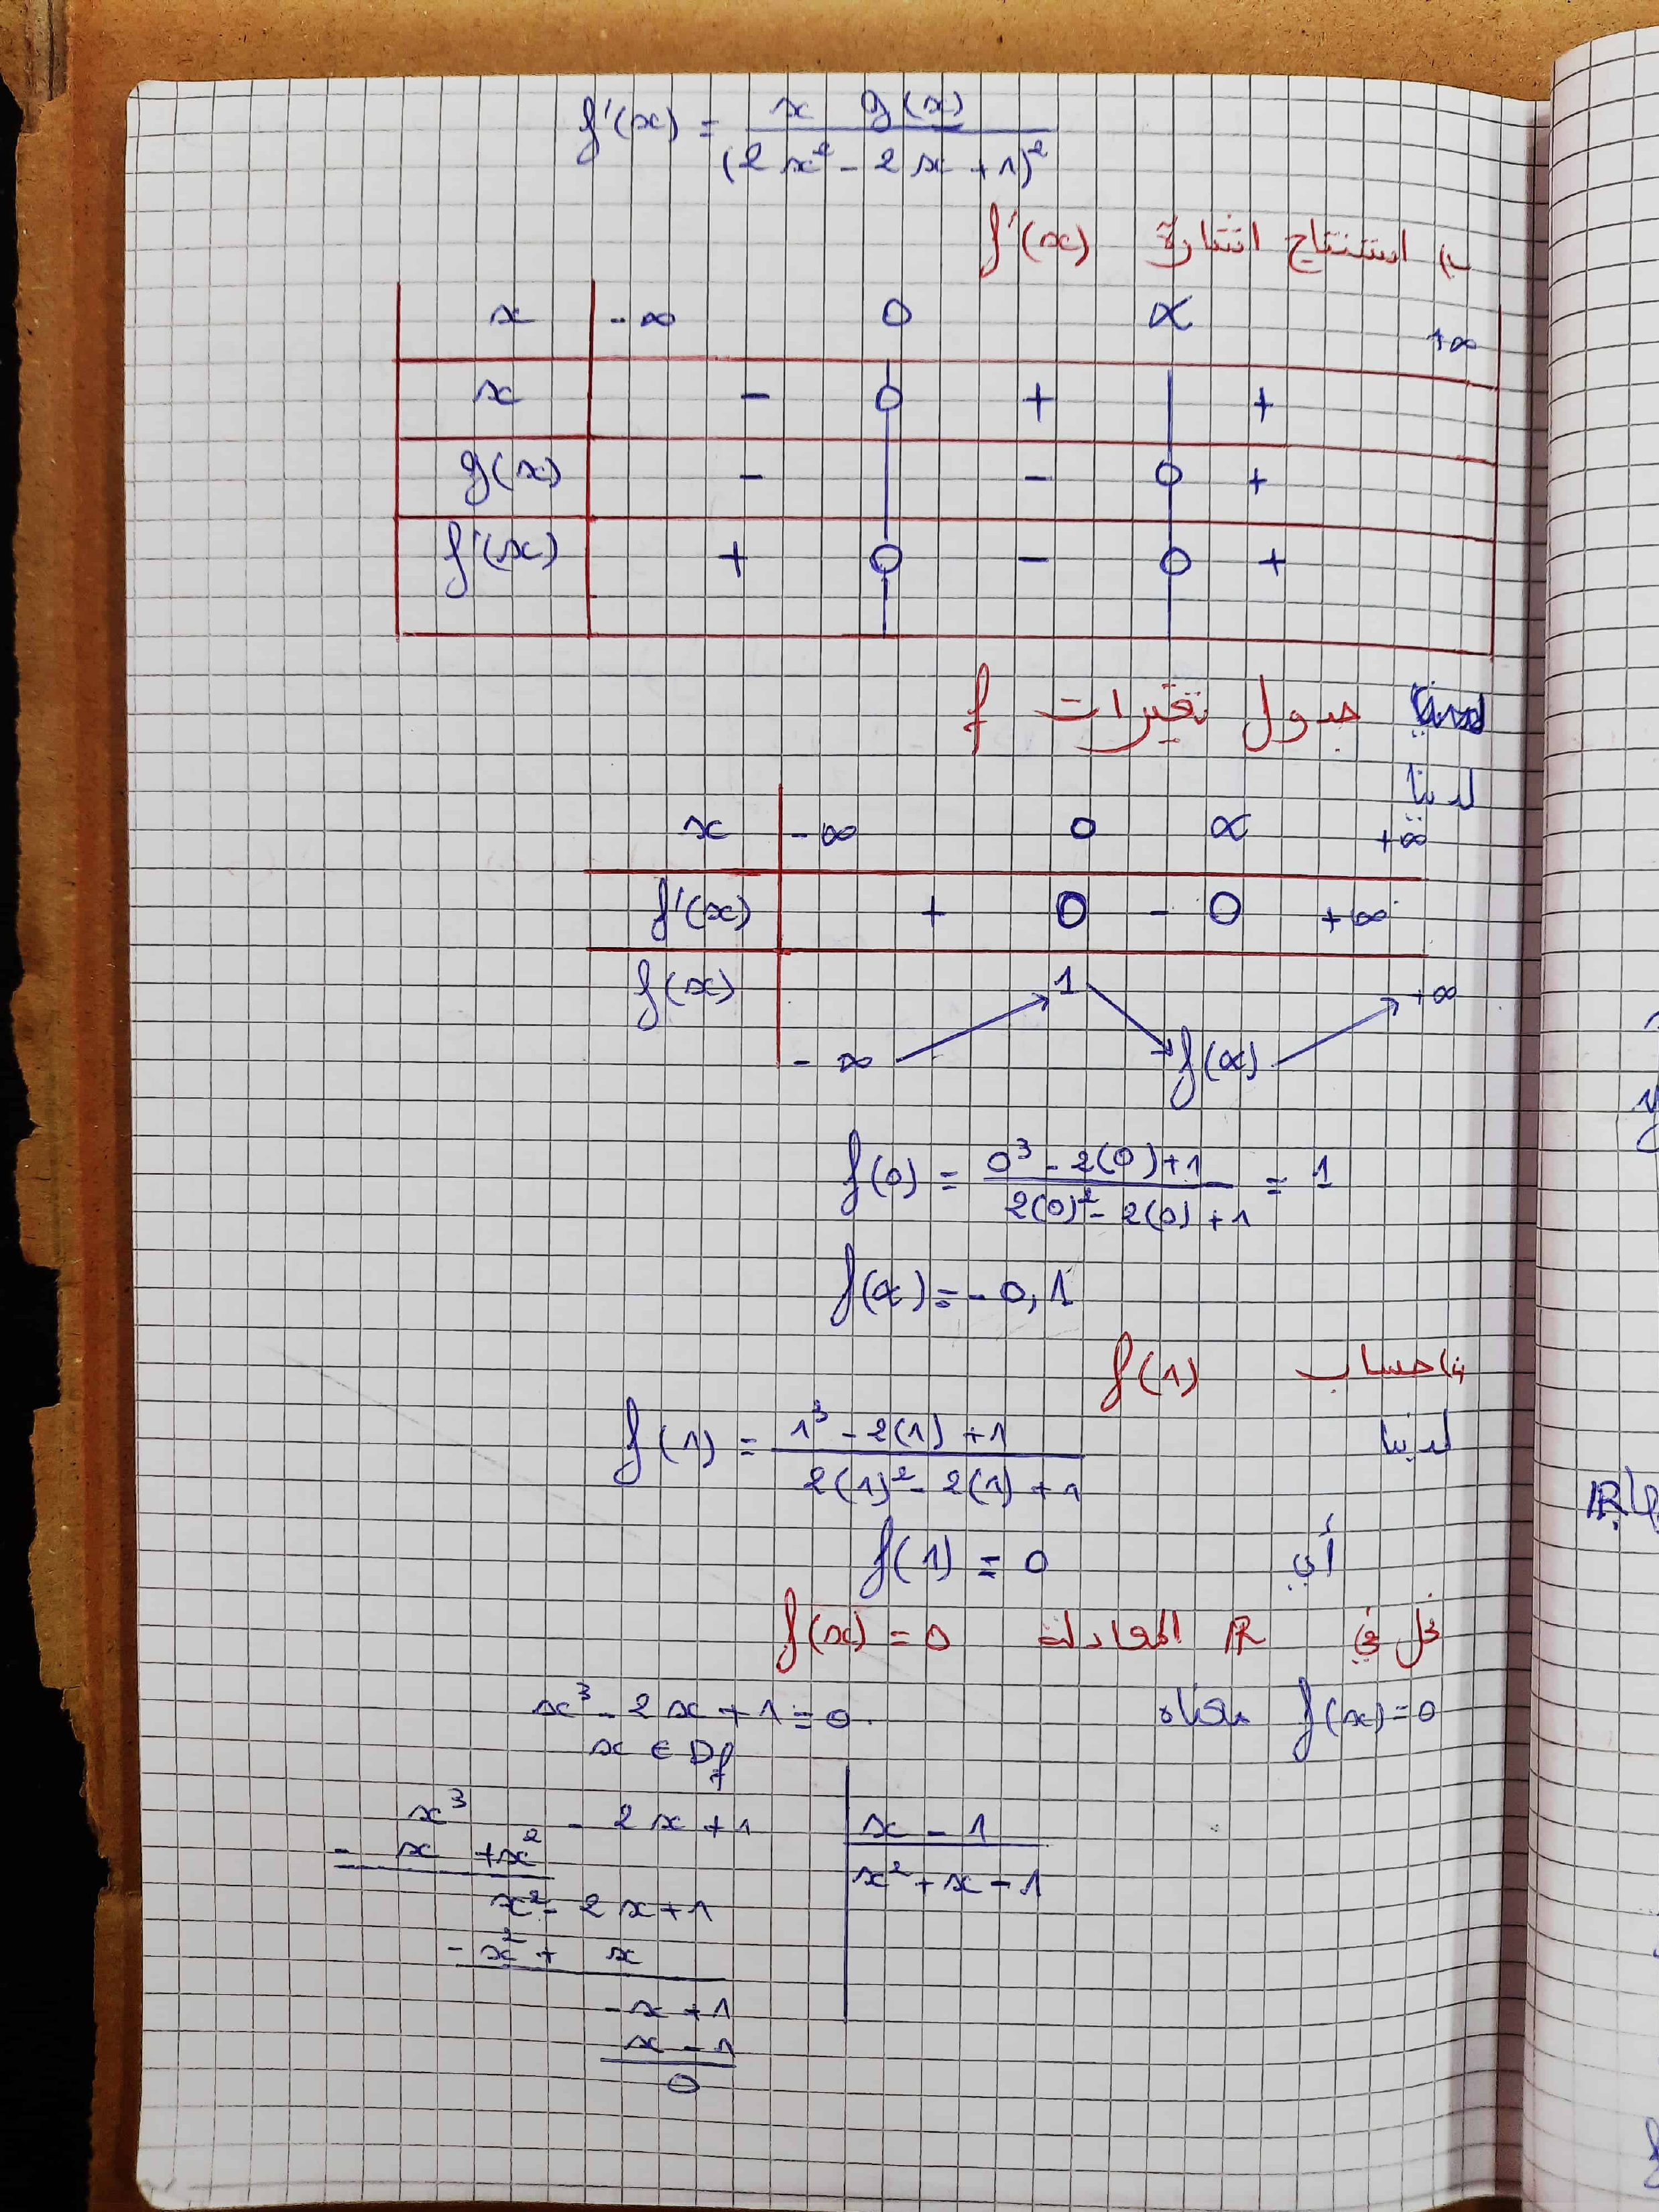 f'(x) = x g(x) / (2x² - 2x + 1)²
ب) استنتاج اشارة f'(x)
x -∞ 0 α +∞
x - 0 + | +
g(x) - | - 0 +
f'(x) + 0 - 0 +
جدول تغيرات f
لدينا
x -∞ 0 α +∞
f'(x) + 0 - 0 +∞
f(x) -∞ ↗ 1 ↘ f(α) ↗ +∞
f(0) = 0³ - 2(0) + 1 / 2(0)² - 2(0) + 1 = 1
f(α) = - 0,1
حساب f(1)
لدينا f(1) = 1³ - 2(1) + 1 / 2(1)² - 2(1) + 1
أي f(1) = 0
حل في ℝ المعادلة f(x) = 0
f(x) = 0 معناه x³ - 2x + 1 = 0
x ∈ Df
x³ - 2x + 1 | x - 1
- x + x² | x² + x - 1
x² - 2x + 1
- x² + x
- x + 1
x - 1
0